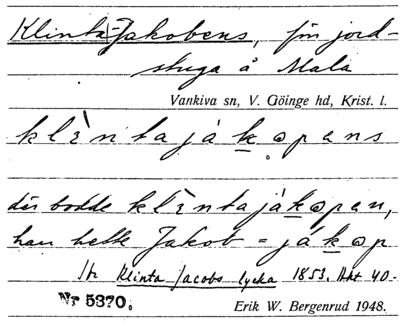 Klinta-Jakobens, fin jord-
stuga å Mala
Vankiva sn, V. Göinge hd, Krist. l.
klìntajákopans
där bodde klìntajákopan,
han hette Jakob = jákop
Klinta Jacobs lycka 1853. Akt 40-
Nr 5370.
Erik W. Bergenrud 1948.